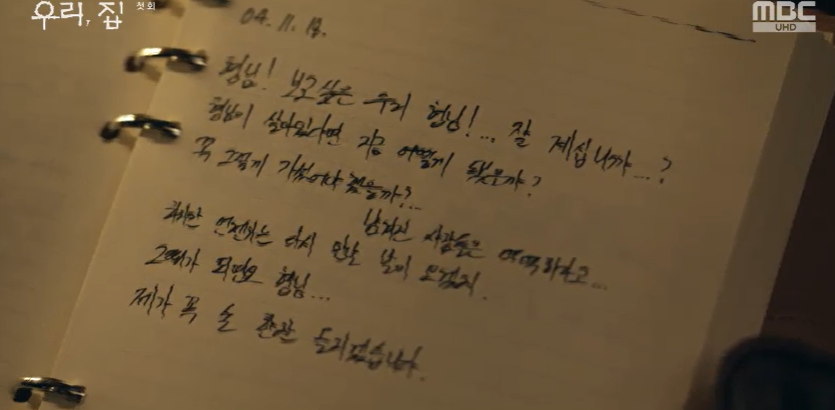 우리, 집 첫회
MBC
UHD
04. 11. 18.
형님! 보고싶은 우리 형님!... 잘 계십니까...?
형님이 살아있다면 지금 어떻게 됐을까?
꼭 그렇게 가셨어야 했을까?...
남겨진 사람들은 어떡하라고...
하지만 언젠가는 다시 만날 날이 오겠지.
그때가 되면요 형님...
제가 꼭 술 한잔 올리겠습니다.